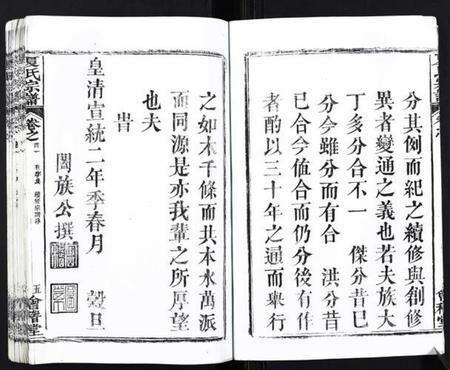 分其例而紀之續修與創修
異者變通之義也若夫族大
丁多分合不一 傑分昔巳
分今雖分而有合 洪分昔
巳合今值合而仍分後有作
者酌以三十年之通而乘行
之如木千條而共本水萬派
而同源是亦我輩之所厚望
也夫
旹
皇清宣統二年季春月 穀旦
闔族公撰
夏氏宗譜
卷之
五